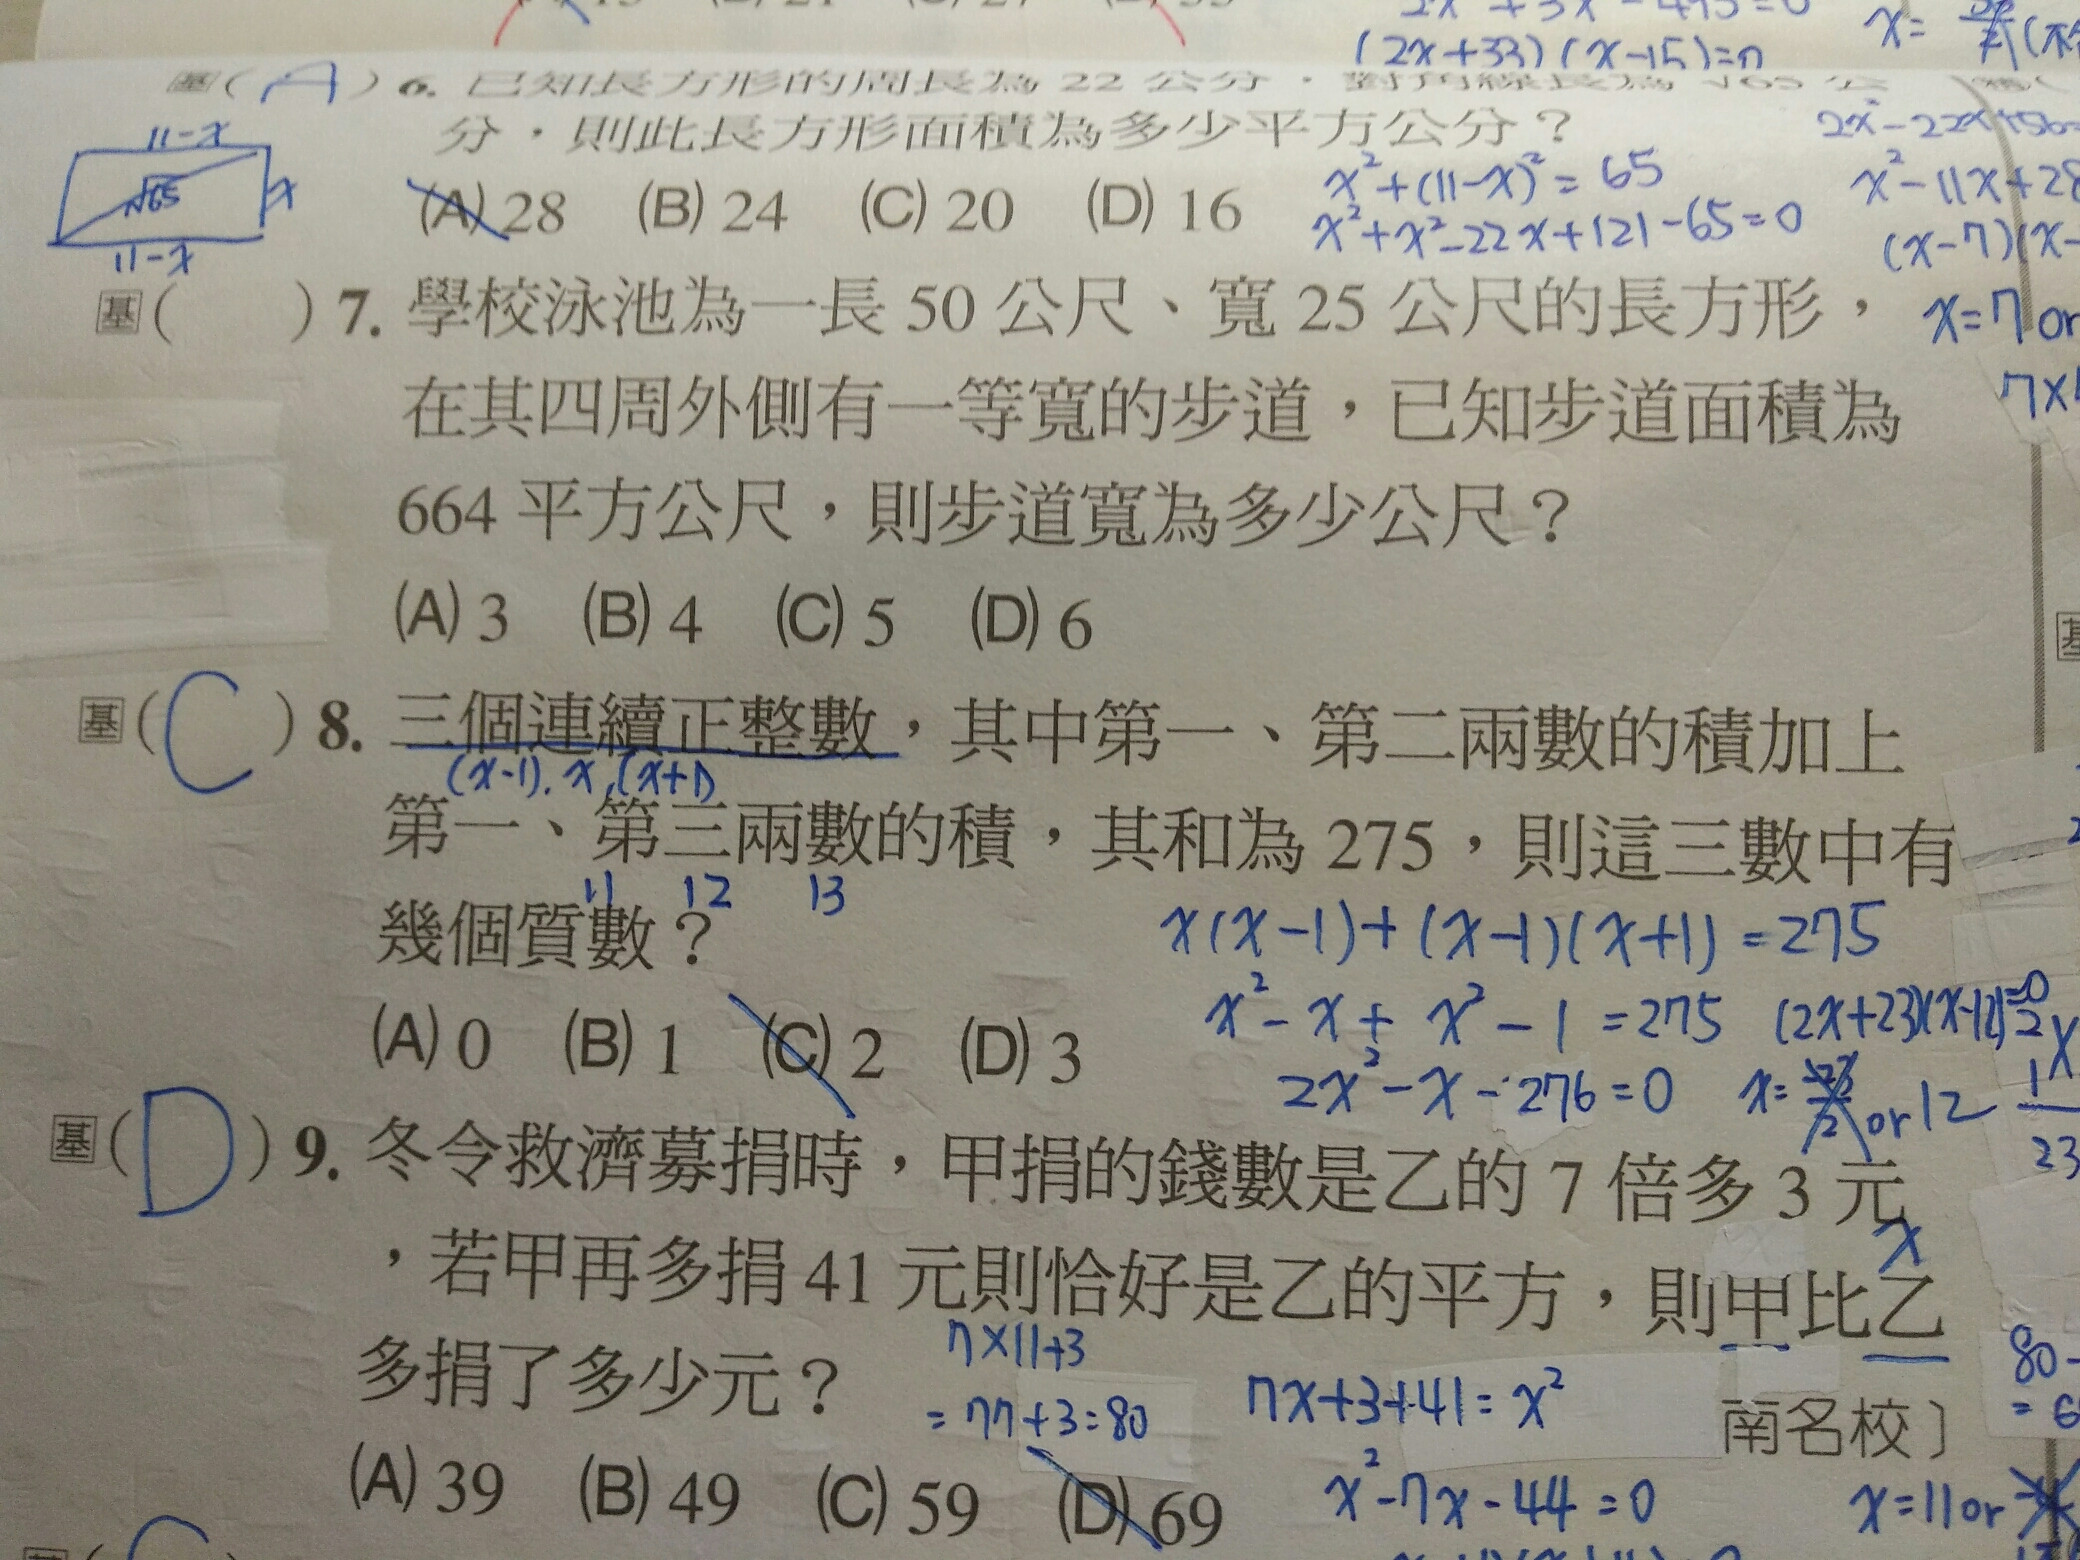 2x²+3x-495=0
(2x+33)(x-15)=0
x=
基(A)6. 已知長方形的周長為 22 公分，對角線長為 √65 公
分，則此長方形面積為多少平方公分？
(A) 28 (B) 24 (C) 20 (D) 16
11-x
√65
x
11-x
x²+(11-x)²=65
x²+x²-22x+121-65=0
2x²-22x+56=
x²-11x+28
(x-7)(x-
x=7 or
7×
基( )7. 學校泳池為一長 50 公尺、寬 25 公尺的長方形，
在其四周外側有一等寬的步道，已知步道面積為
664 平方公尺，則步道寬為多少公尺？
(A) 3 (B) 4 (C) 5 (D) 6
基(C)8. 三個連續正整數，其中第一、第二兩數的積加上
(x-1). x,(x+1)
第一、第三兩數的積，其和為 275，則這三數中有
11 12 13
幾個質數？
x(x-1)+(x-1)(x+1)=275
x²-x+x²-1=275
(2x+23)(x-12)=0
(A) 0 (B) 1 (C) 2 (D) 3
2x²-x-276=0
or 12
23
基(D)9. 冬令救濟募捐時，甲捐的錢數是乙的 7 倍多 3 元
x
，若甲再多捐 41 元則恰好是乙的平方，則甲比乙
多捐了多少元？
7×11+3
=77+3=80
7x+3+41=x²
80-
=6
南名校〕
(A) 39 (B) 49 (C) 59 (D) 69
x²-7x-44=0
x=11 or